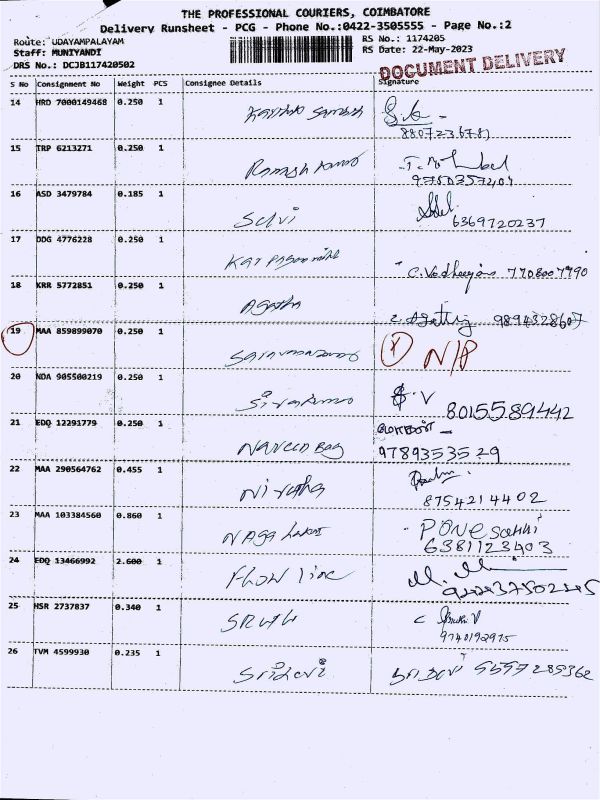 THE PROFESSIONAL COURIERS, COIMBATORE
Delivery Runsheet - PCG - Phone No.:0422-3505555 - Page No.:2
Route: UDAYAMPALAYAM
RS No.: 1174205
Staff: MUNIYANDI
RS Date: 22-May-2023
DRS No.: DCJB117420502
DOCUMENT DELIVERY
S No Consignment No Weight PCS Consignee Details Signature
14 HRD 7000149468 0.250 1
15 TRP 6213271 0.250 1
16 ASD 3479784 0.185 1 Selvi
6369720237
17 DDG 4776228 0.250 1
7708007790
18 KRR 5772851 0.250 1 Agatha
9894328607
19 MAA 859899070 0.250 1 N/P
20 NDA 905500219 0.250 1 Sivakumar
8015589442
21 EDQ 12291779 0.250 1
9789353529
22 MAA 290564762 0.455 1 Nivetha
8754214402
23 MAA 103384560 0.860 1
6381123403
24 EDQ 13466992 2.600 1 Flow line
25 HSR 2737837 0.340 1
9740192975
26 TVM 4599930 0.235 1 Sridevi